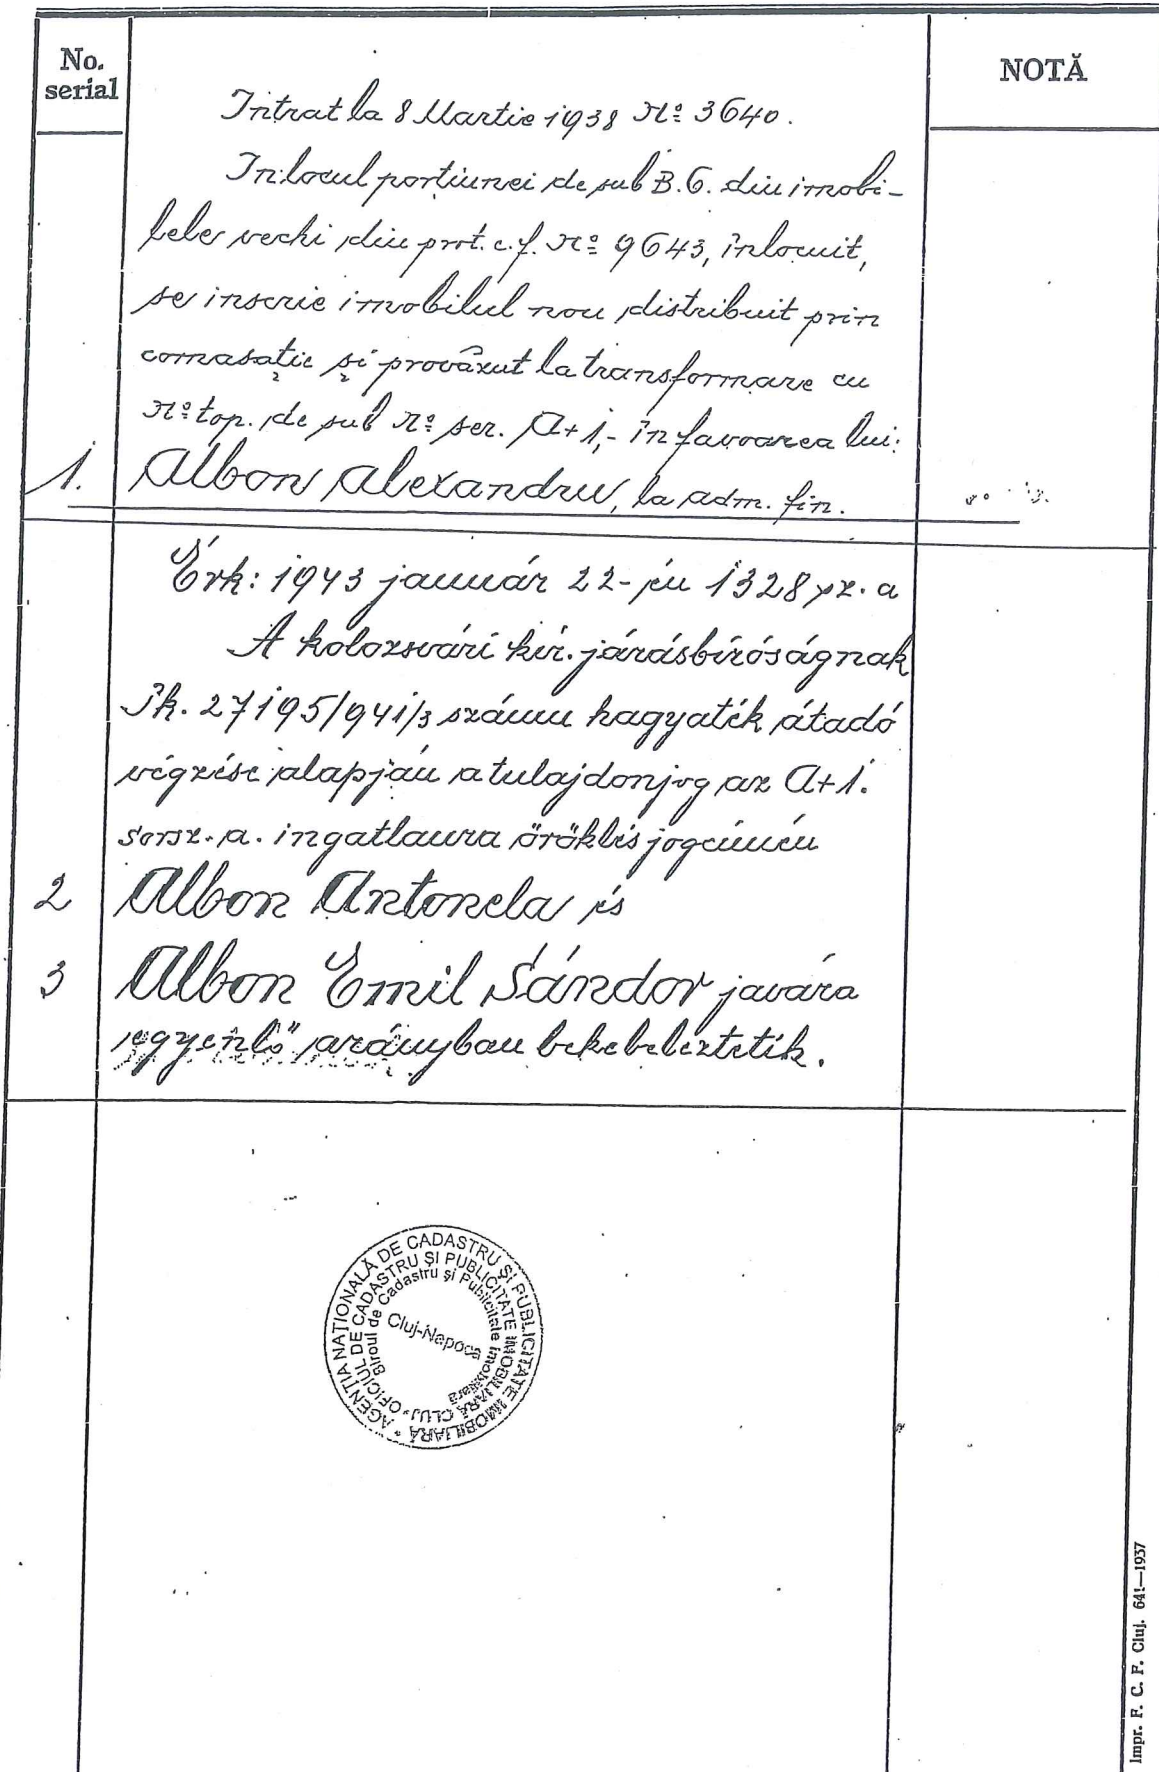 No.
serial
NOTĂ
Intrat la 8 Martie 1938 No 3640.
In locul porțiunei de sub B. 6. din imobi-
lele vechi din prot. c. f. No 9643, înlocuit,
se inscrie imobilul nou distribuit prin
comasație și provăzut la transformare cu
No top. de sub No ser. A+1,- în favoarea lui:
1. Albon Alexandru, la adm. fin.
Érk: 1943 január 22-én 1328 yz. a
A kolozsvári kir. járásbíróságnak
Pk. 27195/941/3 számu hagyaték átadó
végzése alapján a tulajdonjog az A+1.
sorsz. a. ingatlanra öröklés jogcímén
2 Albon Antonela és
3 Albon Emil Sándor javára
egyenlő arányban bekebeleztetik.
AGENȚIA NAȚIONALĂ DE CADASTRU ȘI PUBLICITATE IMOBILIARĂ *
OFICIUL DE CADASTRU ȘI PUBLICITATE IMOBILIARĂ CLUJ *
Biroul de Cadastru și Publicitate Imobiliară
Cluj-Napoca
Impr. F. C. F. Cluj. 641—1937